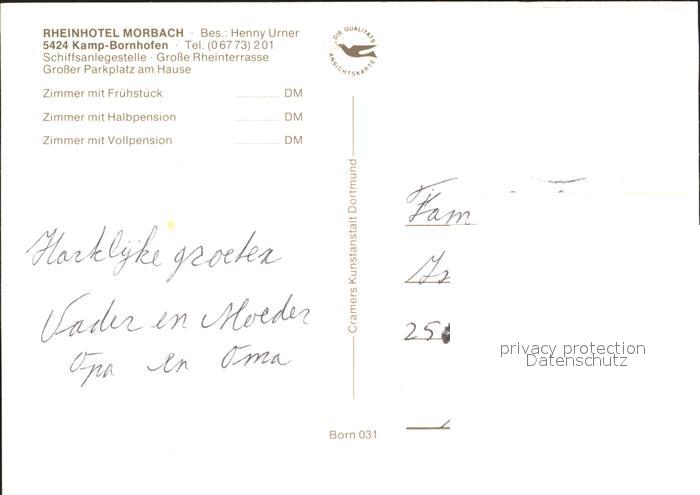 RHEINHOTEL MORBACH · Bes.: Henny Urner
5424 Kamp-Bornhofen · Tel. (06773) 201
Schiffsanlegestelle · Große Rheinterrasse
Großer Parkplatz am Hause
Zimmer mit Frühstück ............ DM
Zimmer mit Halbpension ............ DM
Zimmer mit Vollpension ............ DM
DIE QUALITÄTS
ANSICHTSKARTE
Cramers Kunstanstalt Dortmund
Hartelijke groeten
Vader en Moeder
Opa en Oma
Fam
25
privacy protection
Datenschutz
Born 031